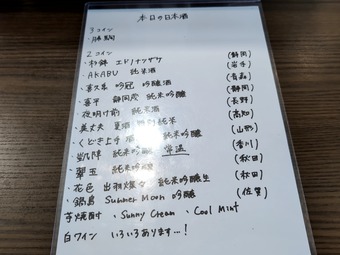 本日の日本酒
3コイン
・勝駒
2コイン
・杉錦 エドノナツザケ (静岡)
・AKABU 純米酒 (岩手)
・喜久泉 吟冠 吟醸酒 (青森)
・喜平 静岡蔵 純米吟醸 (静岡)
・夜明け前 純米酒 (長野)
・美丈夫 夏酒 純米酒 (高知)
・くどき上手 純米吟醸 (山形)
・悦凱陣 純米吟醸 常温 (香川)
・翠玉 純米吟醸 (秋田)
・花邑 出羽燦々 純米吟醸生 (秋田)
・鍋島 Summer Moon 吟醸 (佐賀)
芋焼酎 ・Sunny Cream ・Cool Mint
白ワイン いろいろあります…!